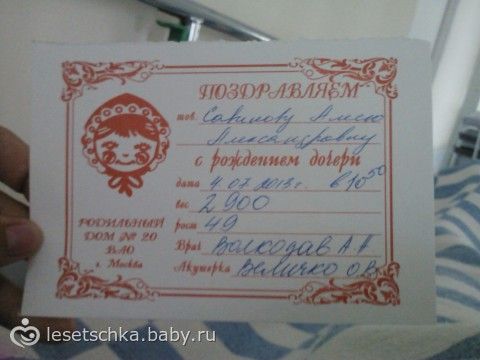 ПОЗДРАВЛЯЕМ
тов. Савинову Алису
Александровну
с рождением дочери
дата 4.07.2013г. в 10 50
вес 2900
рост 49
Врач Волкодав А А
Акушерка Величко О В
РОДИЛЬНЫЙ
ДОМ № 20
ВАО
г. Москва
lesetschka.baby.ru